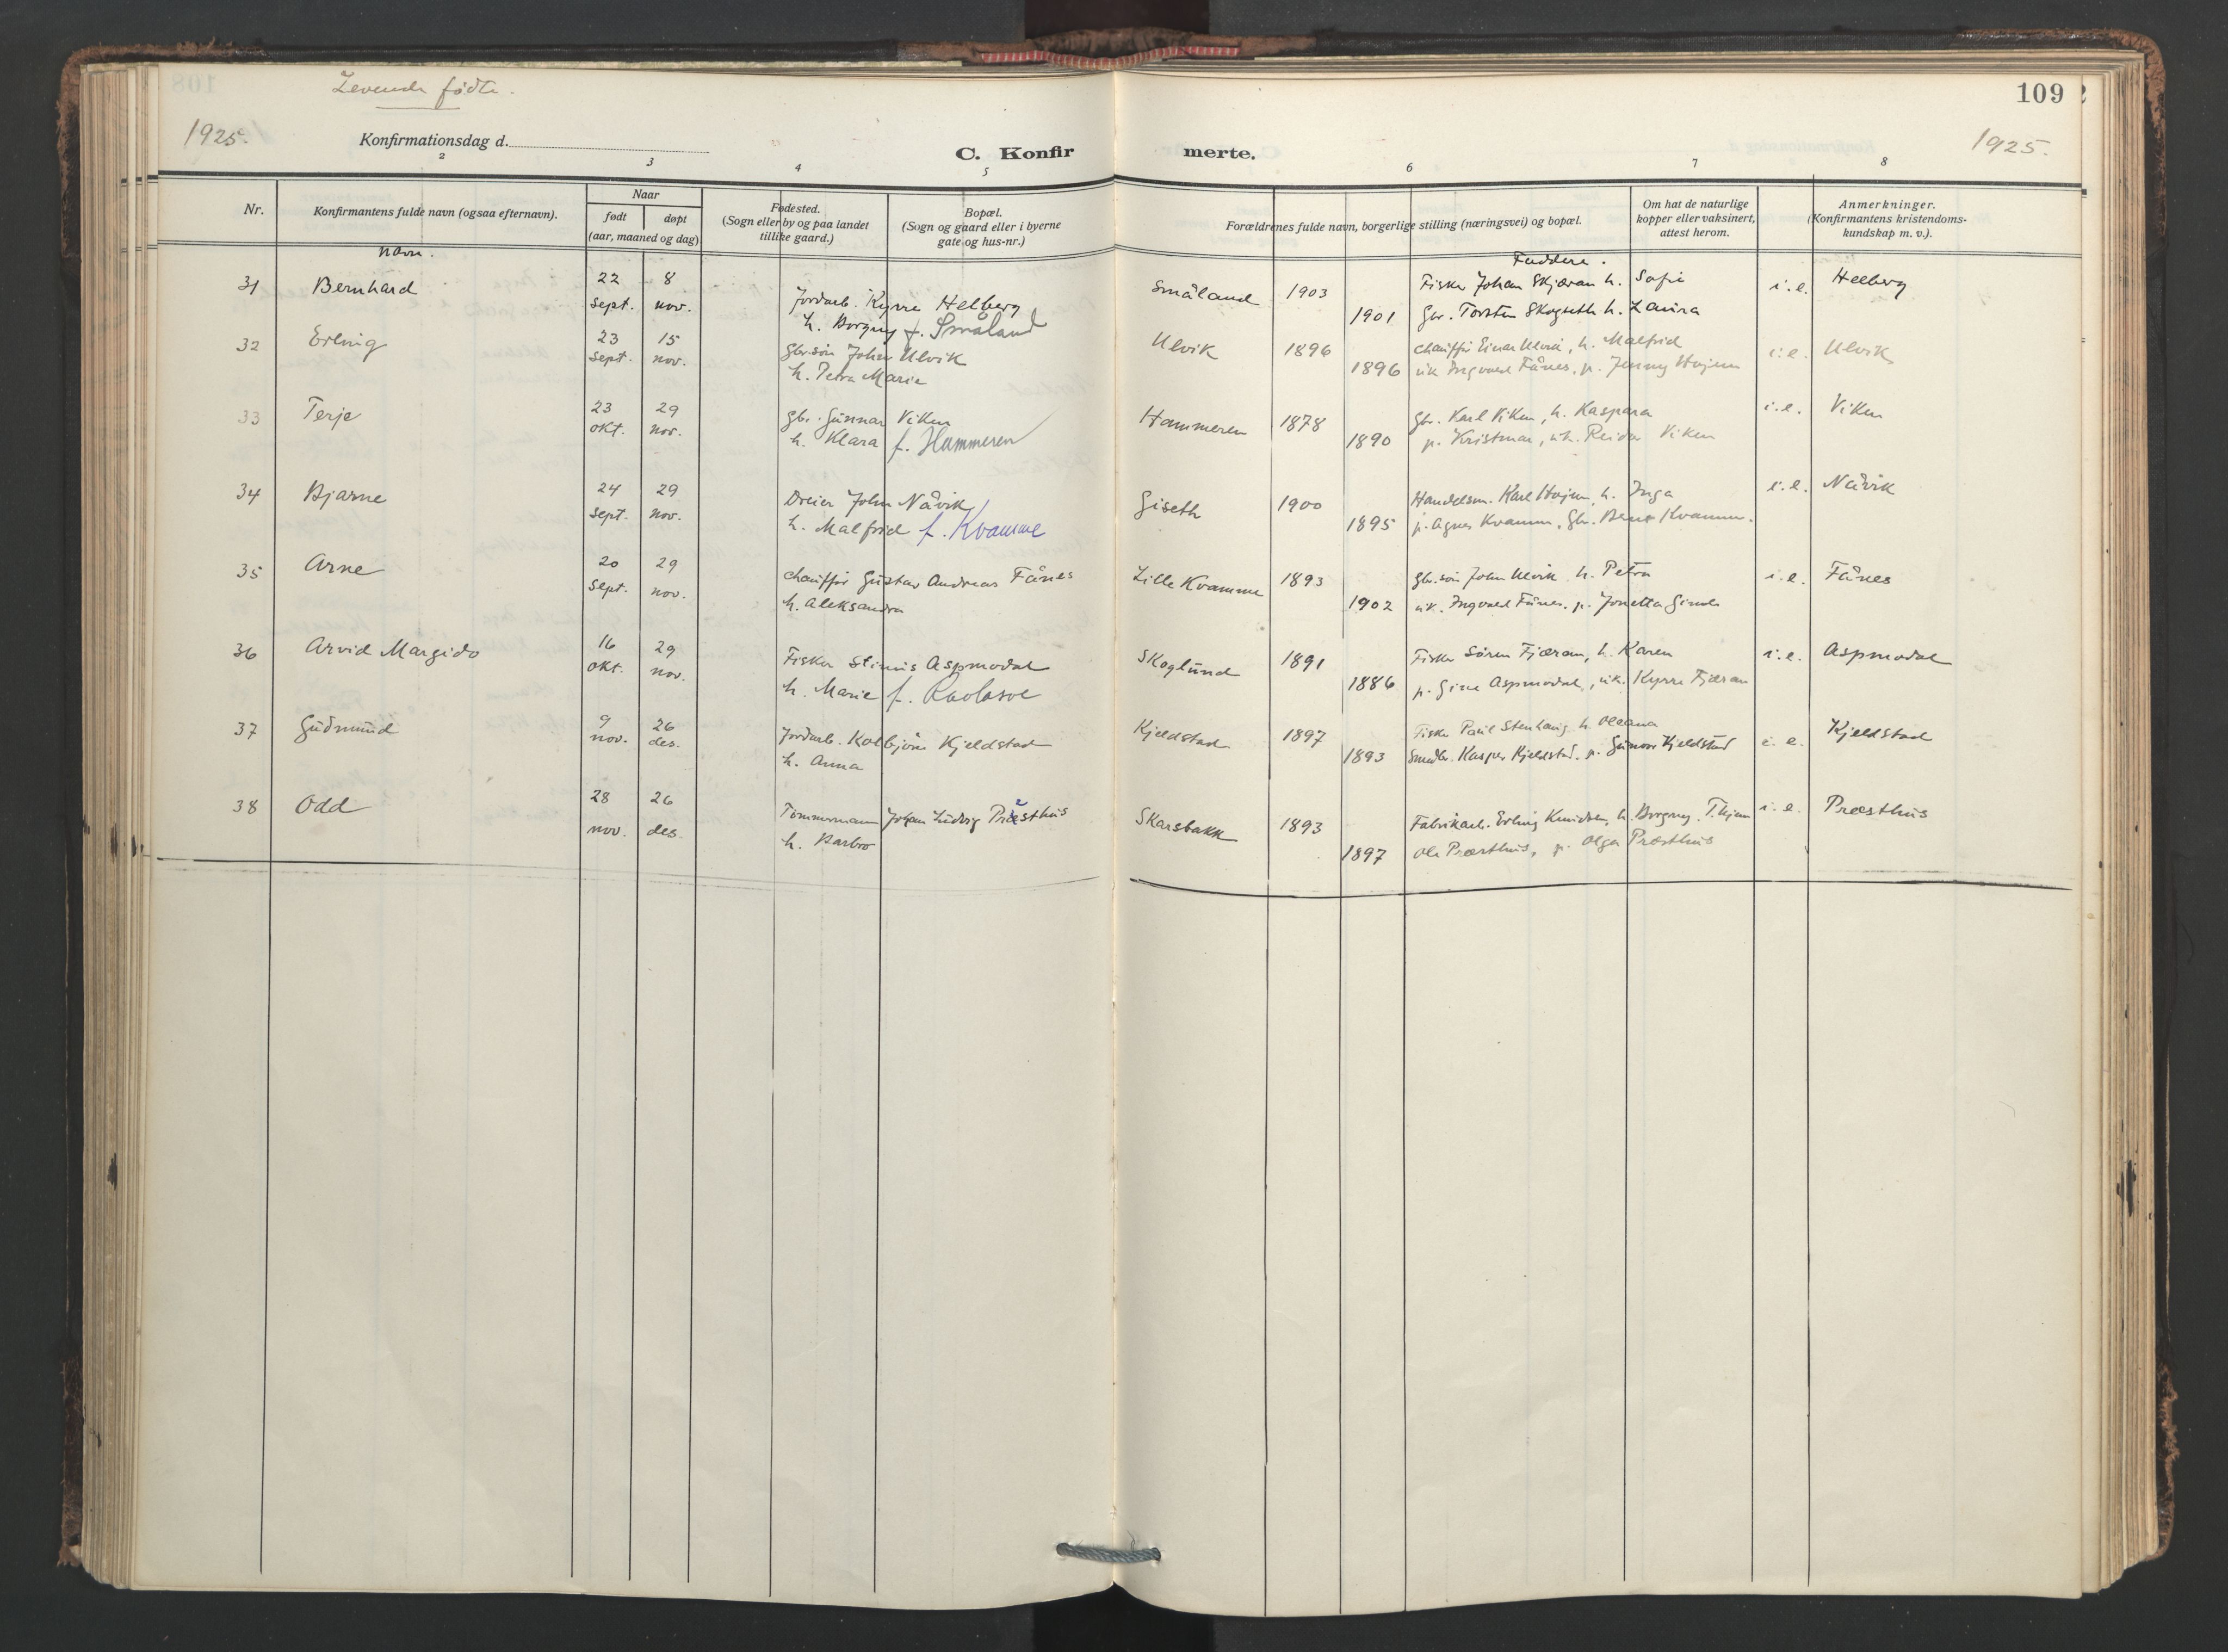 Levende fødte.
109
1925.
Konfirmationsdag d.
C. Konfirmerte.
1925.
2 3 4 5 6 7 8
Nr.
Konfirmantens fulde navn (ogsaa efternavn).
Naar
født døpt
(aar, maaned og dag)
Fødested.
(Sogn eller by og paa landet
tillike gaard.)
Bopæl.
(Sogn og gaard eller i byerne
gate og hus-nr.)
Forældrenes fulde navn, borgerlige stilling (næringsvei) og bopæl.
Om hat de naturlige
kopper eller vaksinert,
attest herom.
Anmerkninger.
(Konfirmantens kristendoms-
kundskap m. v.).
Navn.
Faddere.
31 Bernhard 22 8 Jordarb. Kyrre Helberg Småland 1903 Fisker Johan Skjæran h. Sofie i.e. Helberg
sept. nov. h. Borgny f. Småland 1901 Gbr. Torsten Skogseth h. Laura
32 Erling 23 15 Gbr.sön John Ulvik Ulvik 1896 Chauffør Einar Ulvik, h. Malfrid i.e. Ulvik
sept. nov. h. Petra Marie 1896 uk. Ingvald Fånes, p. Jenny Hojem
33 Terje 23 29 Gbr. Gunnar Viken Hammeren 1878 Gbr. Karl Viken, h. Kaspara i.e. Viken
okt. nov. h. Klara f. Hammeren 1890 p. Kristmar, uk. Reidar Viken
34 Bjarne 24 29 Dreier John Nåvik Giseth 1900 Handelsm. Karl Hojem, h. Inga i.e. Nåvik
sept. nov. h. Malfrid f. Kvamme 1895 p. Agnes Kvamm, Gbr. Bent Kvamm.
35 Arne 20 29 Chauffør Gustav Andreas Fånes Lille Kvamme 1893 Gbr.sön John Ulvik h. Petra i.e. Fånes
sept. nov. h. Aleksandra 1902 uk. Ingvald Fånes, p. Jonetta
36 Arvid Margido 16 29 Fisker Stinius Aspmodal Skoglund 1891 Fisker Sören Fjæran, h. Karen i.e. Aspmodal
okt. nov. h. Marie f. 1886 p. Gine Aspmodal, uk. Kyrre Fjæran
37 Gudmund 9 26 Jordarb. Kolbjörn Kjeldstad Kjeldstad 1897 Fisker Paul Stenhaug h. Oleana i.e. Kjeldstad
nov. des. h. Anna 1893 Småbr. Kasper Kjeldstad, p. Gunvor Kjeldstad
38 Odd 28 26 Tömmermann Johan Ludvig Præsthus Skarsbakk 1893 Fabrikarb. Erling Knudsen, h. Borgny. i.e. Præsthus
nov. des. h. Barbro 1897 Ole Præsthus, p. Olga Præsthus